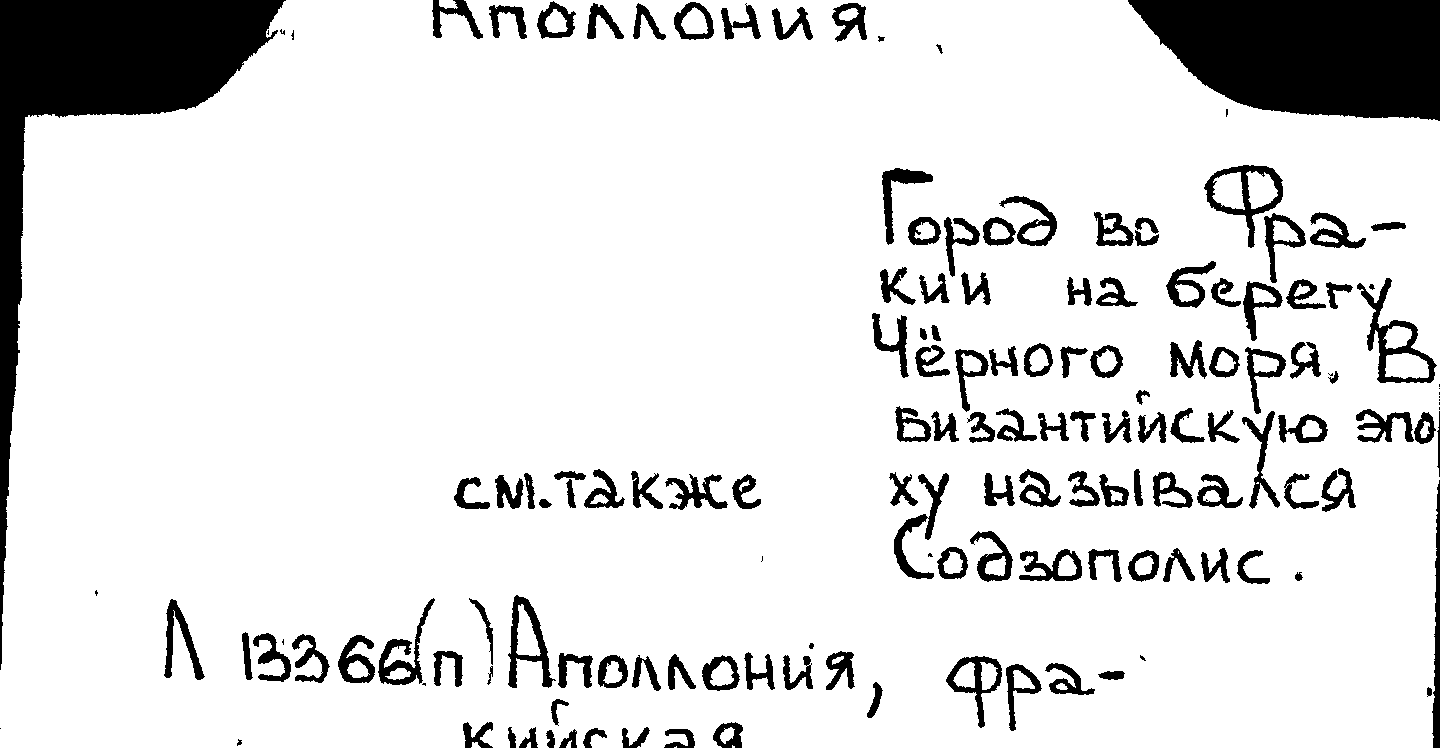 Аполлония.
Город во Фра-
кии на берегу
Чёрного моря. В
византийскую эпо
ху назывался
Содзополис.
см. также
Л 13366(п) Аполлония, фра-
кийская